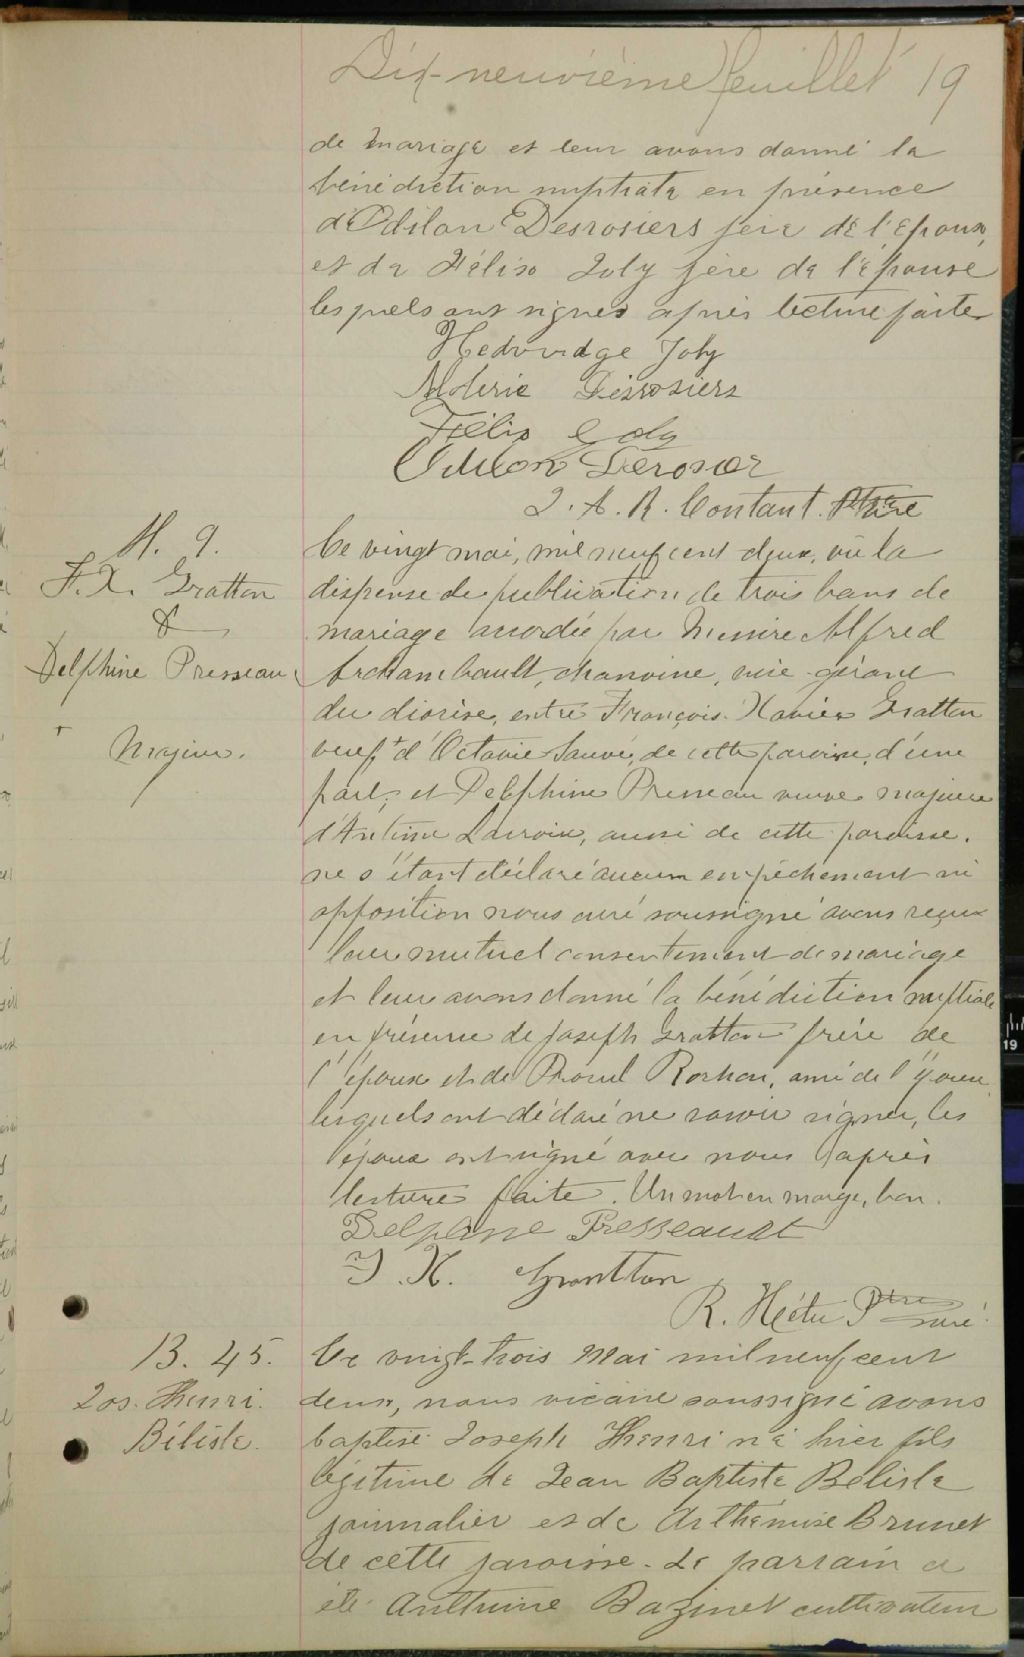 Dix-neuvième feuillet 19
de mariage et leur avons donné la
bénédiction nuptiale en présence
d'Odilon Desrosiers père de l'époux,
et de Félix Joly père de l'épouse
lesquels ont signés après lecture faite
Hedwidge Joly
Désrosiers
Félix Joly
Odilon Derosier
J. A. R. Contant. Ptre
M. 9.
F. X. Gratton
&
Delphine Presseau
Ce vingt mai, mil neuf cent deux, vu la
dispense de publication de trois bans de
mariage accordée par Messire Alfred
Archambault, chanoine, vice-gérant
du diocèse, entre François-Xavier Gratton
veuf + d'Octavie Sauvé, de cette paroisse, d'une
+ Majeur.
part, et Delphine Presseau veuve majeure
d'Antime Lacroix, aussi de cette paroisse.
ne s'étant déclaré aucun empêchement ni
opposition nous curé soussigné avons reçu
leur mutuel consentement de mariage
et leur avons donné la bénédiction nuptiale
en présence de Joseph Gratton frère de
l'époux et de Raoul Rochon, ami de l'époux
lesquels ont déclaré ne savoir signer, les
époux ont signé avec nous après
lecture faite. Un mot en marge, bon.
Delphine Presseault
F. X. Grantton
R. Hétu Ptre curé.
B. 45.
Jos. Henri.
Bélisle.
Ce vingt-trois Mai mil neuf cent
deux, nous vicaire soussigné avons
baptisé Joseph Henri né hier fils
légitime de Jean Baptiste Bélisle
journalier et de Arthémise Brunet
de cette paroisse. Le parrain a
été Anthime Bazinet cultivateur